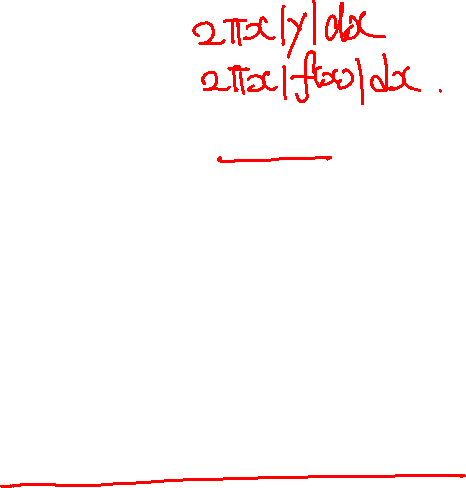 2πx|y|dx
2πx|f(x)|dx.